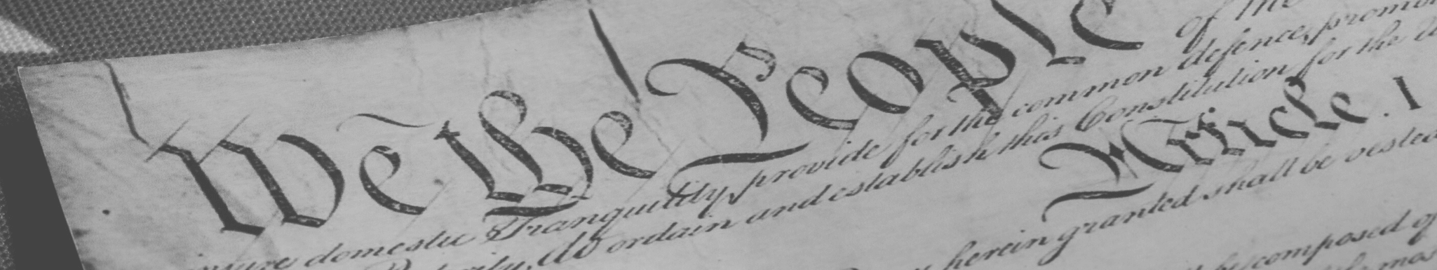 We the People of the
insure domestic Tranquility, provide for the common defence, promo
Posterity, do ordain and establish this Constitution for the U
Article. I
herein granted shall be vested
be composed of
the mos